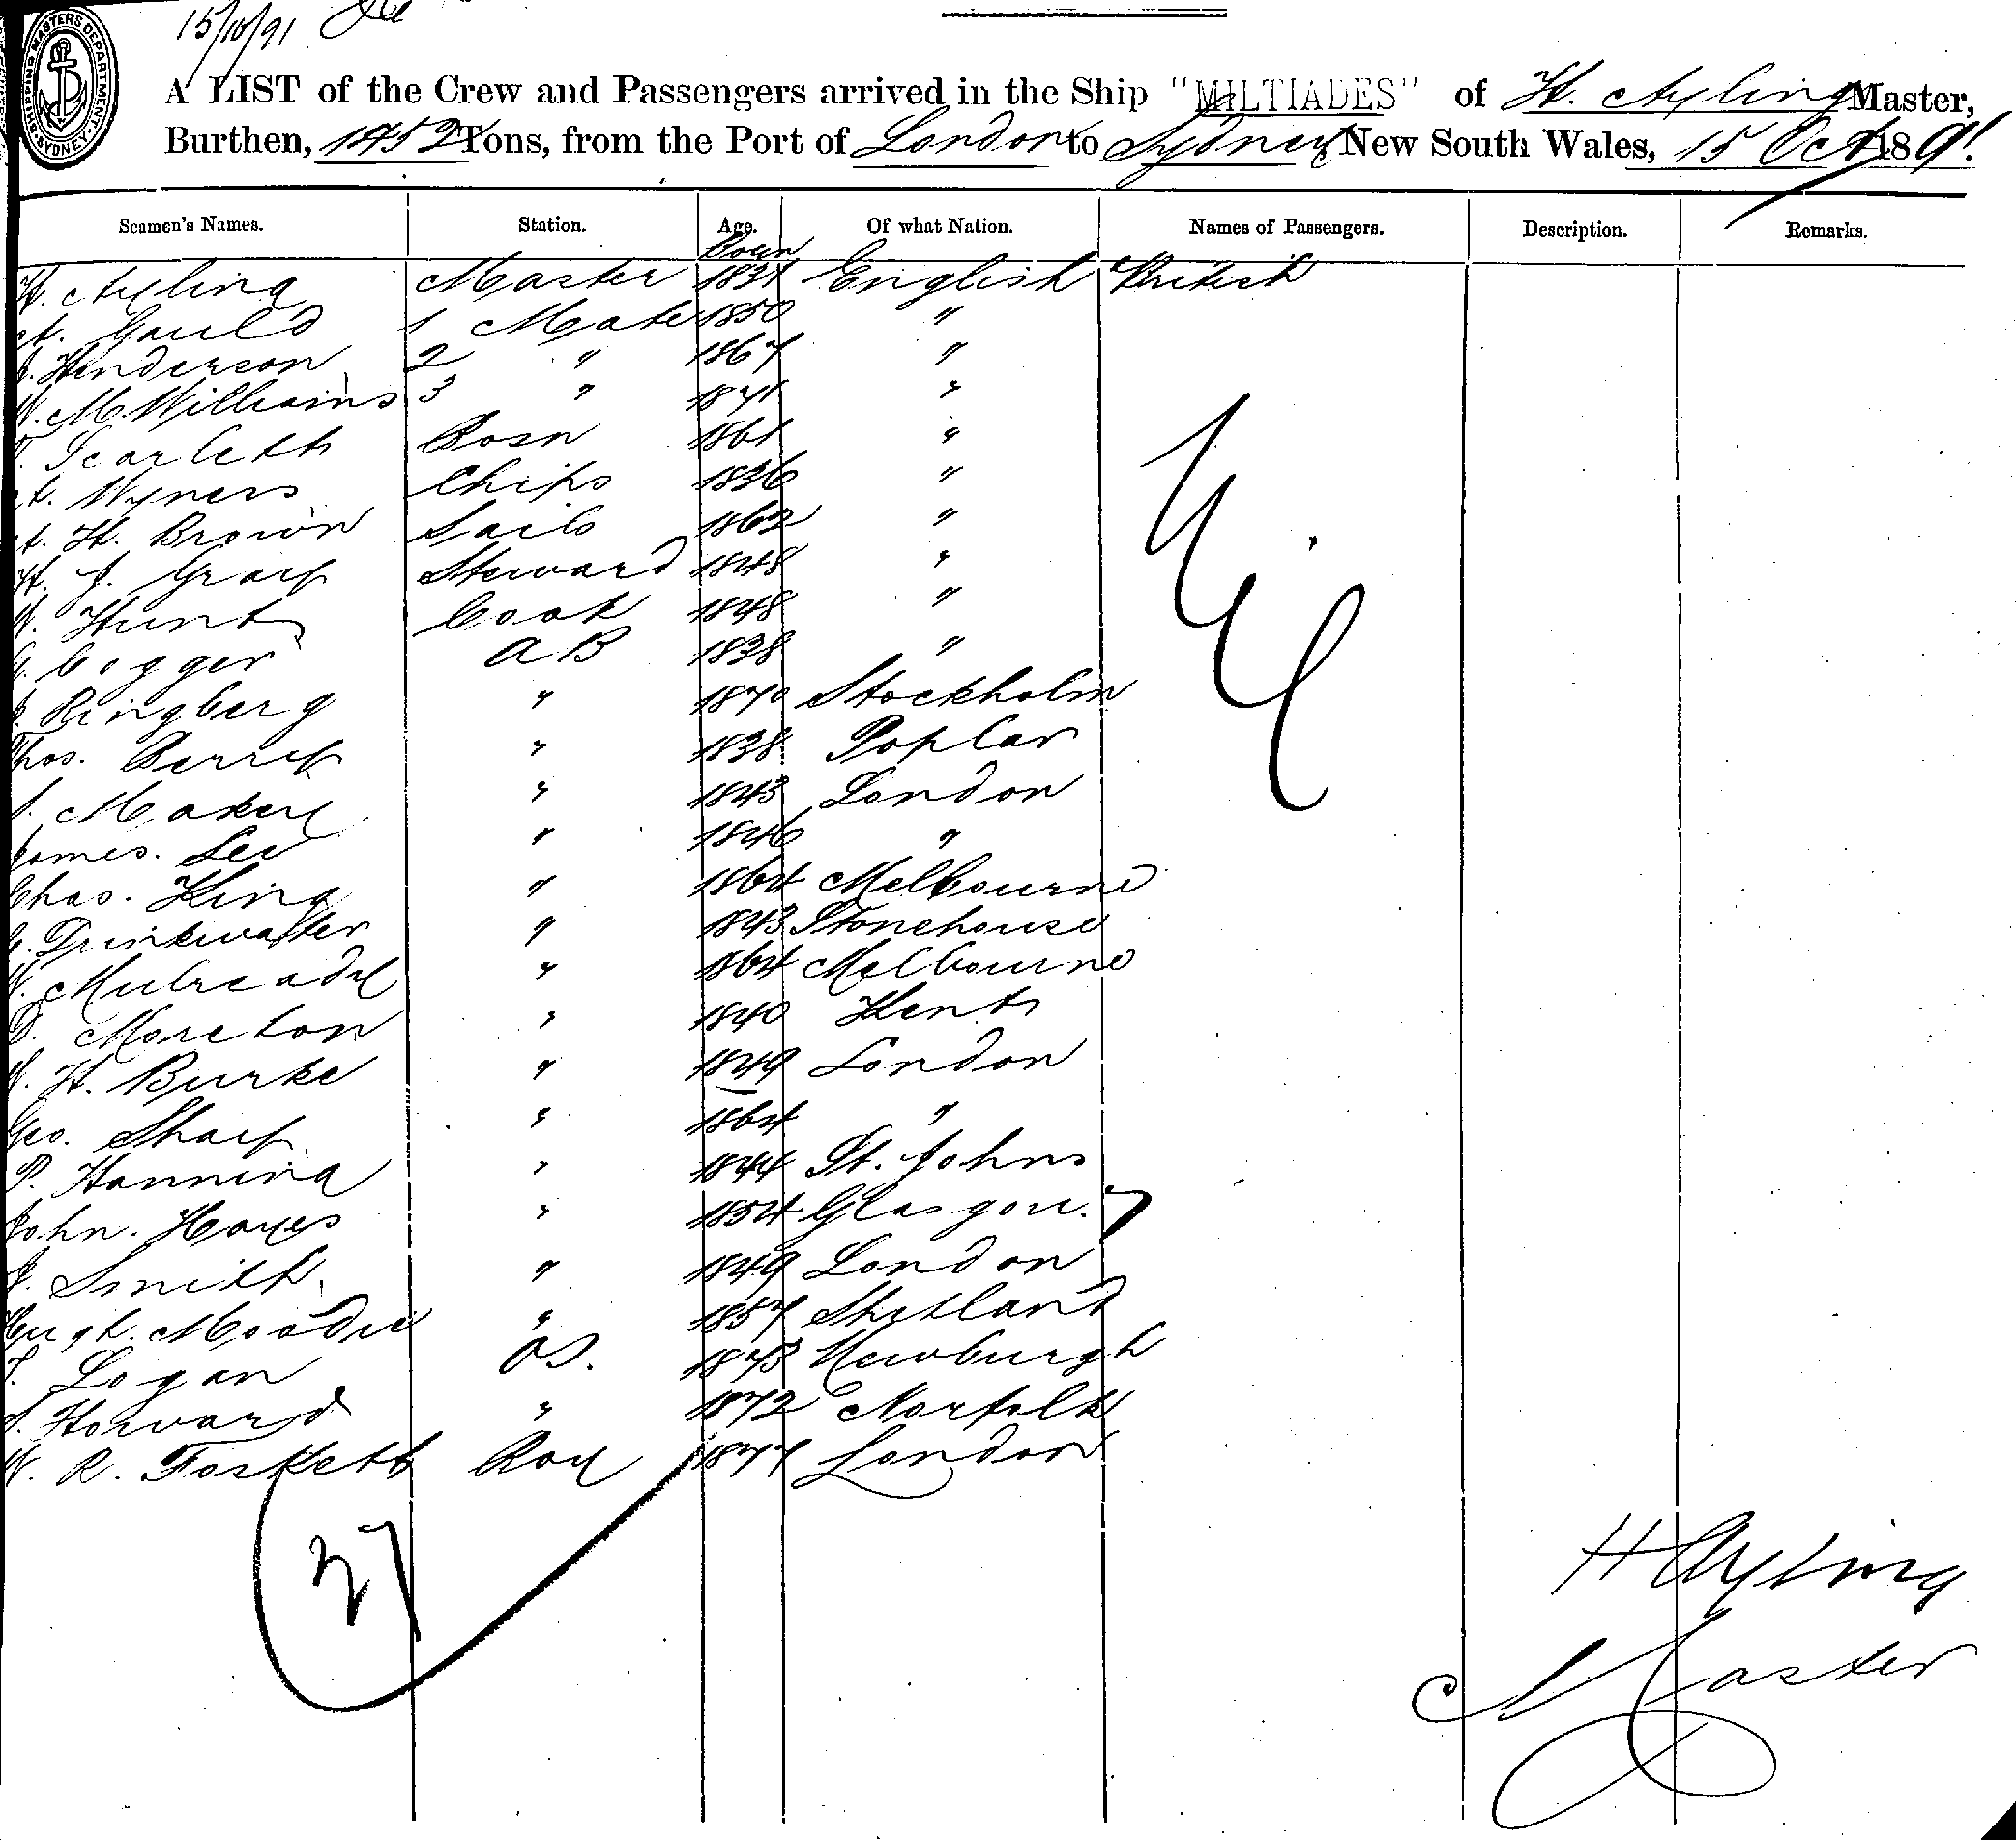 15/10/91
SHIPPING MASTERS DEPARTMENT SYDNEY
A LIST of the Crew and Passengers arrived in the Ship "MILTIADES" of H. Ayling Master,
Burthen, 1452 Tons, from the Port of London to Sydney New South Wales, 15 Oct 1891
Seamen's Names. Station. Age. Of what Nation. Names of Passengers. Description. Remarks.
Born
H. Ayling Master 1831 English British
A. Gauld 1 Mate 1850 "
J. Henderson 2 " 1867 "
W. McWilliams 3 " 1871 "
Scarlett Bosn 1861 "
A. Wyness Chips 1836 "
A. H. Brown Sails 1862 "
H. J. Gray Steward 1848 "
W. Hunt Cook 1848 "
G. Cogger AB 1838 "
J. Ringberg " 1870 Stockholm
Thos. Berry " 1838 Poplar
Makey " 1843 London
James. Lee " 1846 "
Chas. King " 1864 Melbourne
G. Drinkwater " 1843 Stonehouse
W. Mulready " 1864 Melbourne
D. Moreton " 1840 Kent
W. H. Burke " 1849 London
Geo. Sharp " 1864 "
P. Hannina " 1844 St. Johns
John. Hayes " 1854 Glasgow.
J. Smith " 1849 London
Hugh. Moodie " 1857 Shetland
T. Logan OS. 1873 Newburgh
Howard " 1872 Norfolk
W. R. Foskett Boy 1877 London
Nil
27
H Ayling
Master